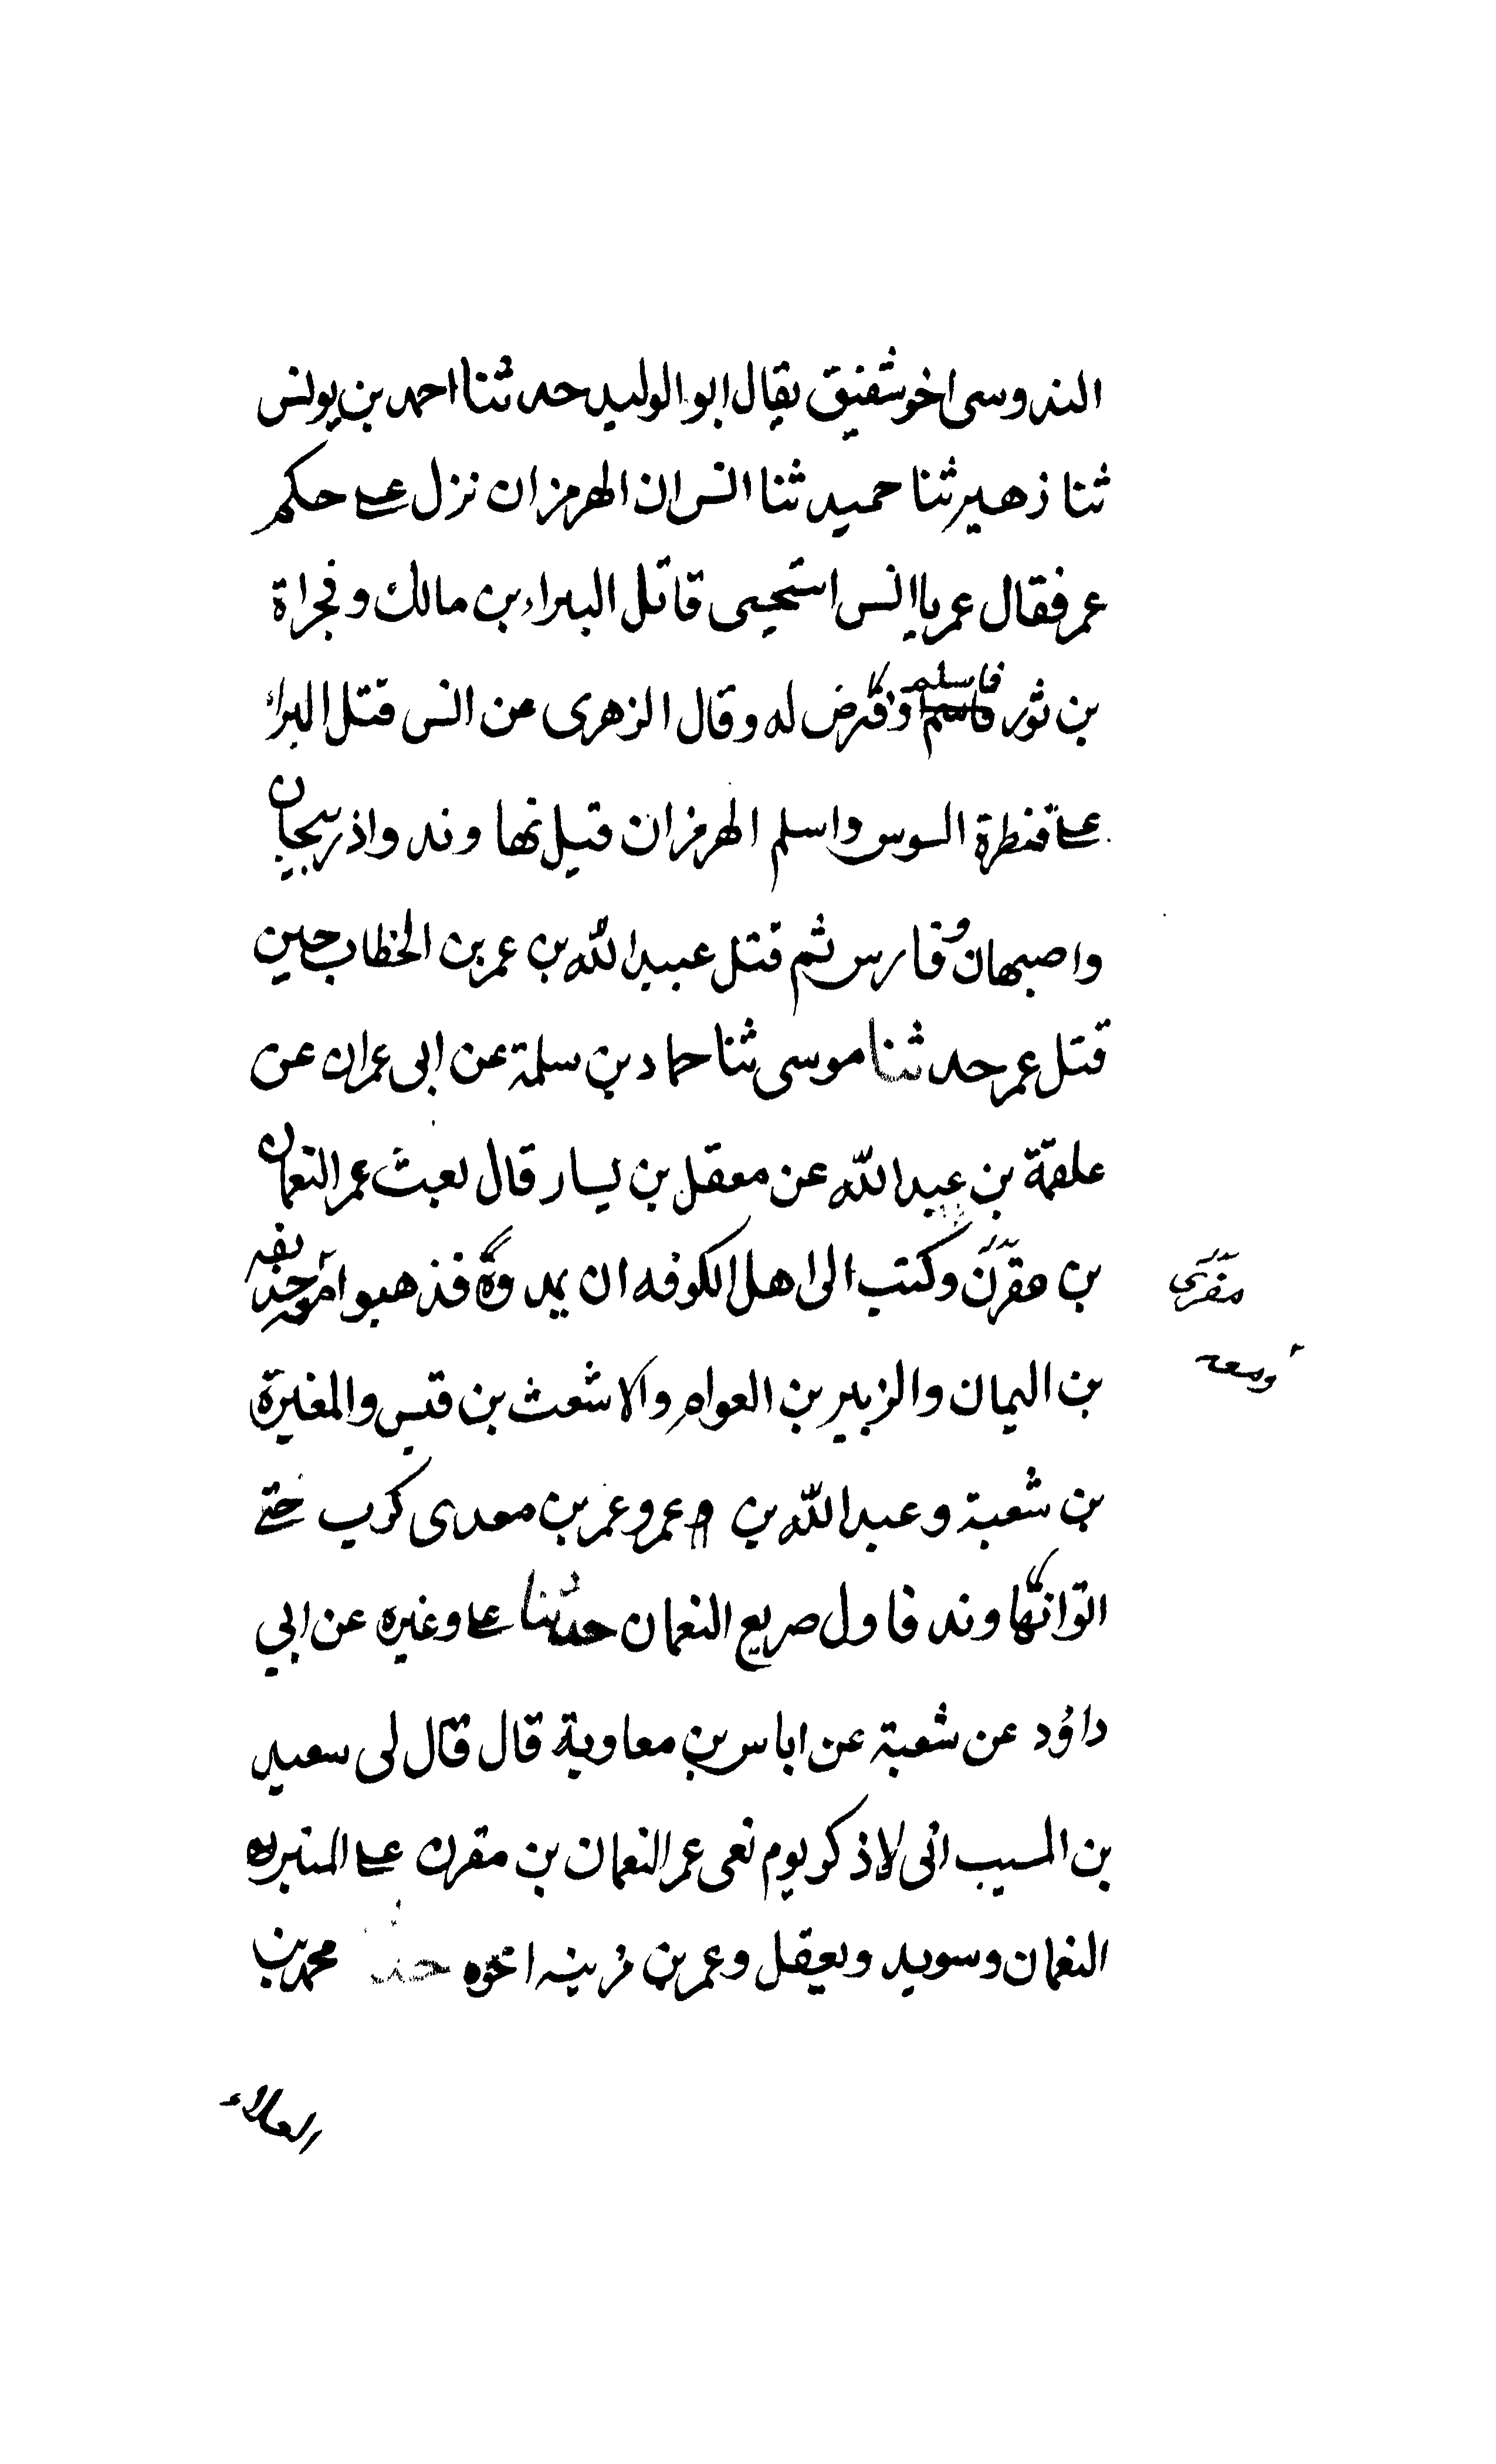 الندوسى اخو شفيق يقال ابو الوليد حدثنا احمد بن يونس
ثنا زهير ثنا حميد ثنا انس ان الهرمزان نزل على حكم
عمر فقال عمر يا انس استحيى قاتل البراء بن مالك و مجراة
بن ثور فاسلم وفرض له وقال الزهرى عن انس قتل البراء
على قنطرة السوس واسلم الهرمزان قتيل نهاوند واذربيجان
واصبهان وفارس ثم قتل عبيد الله بن عمر بن الخطاب حين
قتل عمر حدثنا موسى ثنا حماد بن سلمة عن ابى عمران عن
علقمة بن عبد الله عن معقل بن يسار قال بعث عمر النعمان
بن مقرن وكتب الى اهل الكوفه ان يمدوه فذهبوا حذيفه
مقرن
ومعه
بن اليمان والزبير بن العوام والاشعث بن قيس والمغيرة
بن شعبة وعبد الله بن عمر وعمر بن معدى كرب حتى
اتوا نهاوند فاول صريع النعمان حدثنا على وغيره عن ابي
داؤد عن شعبة عن اياس بن معاوية قال قال لى سعيد
بن المسيب انى لاذكر يوم نعى عمر النعمان بن مقرن على المنبر
النعمان وسويد ومعقل وعمر بن مزينه اخوه حدثنا محمد بن
العلاء